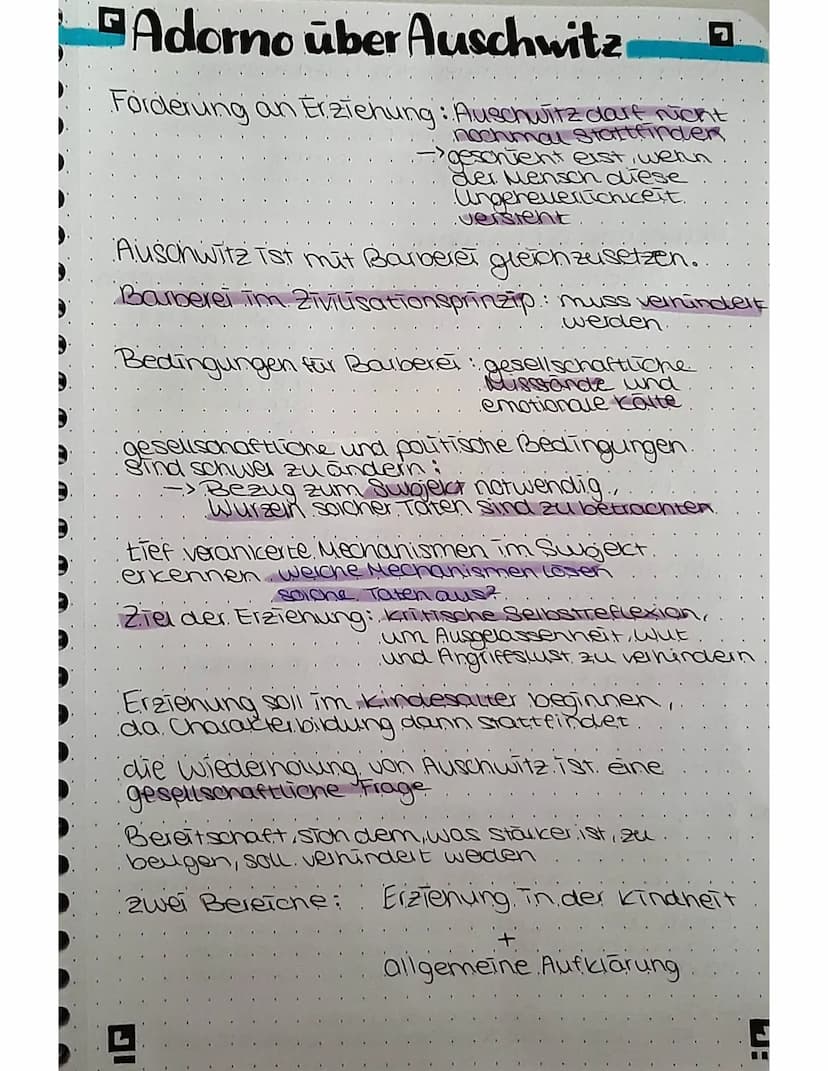 Adorno über Auschwitz
Forderung an Erziehung: Auschwitz darf nicht
nochmal stattfinden
-> geschieht erst, wenn
der Mensch diese
Ungeheuerlichkeit
versteht
Auschwitz ist mit Barberei gleichzusetzen.
Barberei im Zivilisationsprinzip: muss verhindert
werden
Bedingungen für Barberei: gesellschaftliche
Missstände und
emotionale Kälte
gesellschaftliche und politische Bedingungen
sind schwer zu ändern:
-> Bezug zum Subjekt notwendig,
Wurzeln solcher Taten sind zu betrachten
tief verankerte Mechanismen im Subjekt
erkennen welche Mechanismen lösen
solche Taten aus?
Ziel der Erziehung: kritische Selbstreflexion,
um Ausgelassenheit, Wut
und Angriffslust zu verhindern
Erziehung soll im Kindesalter beginnen,
da Charakterbildung dann stattfindet
die Wiederholung von Auschwitz ist eine
gesellschaftliche Frage
Bereitschaft, sich dem, was stärker ist, zu
beugen, soll verhindert weden
zwei Bereiche: Erziehung in der Kindheit
+
allgemeine Aufklärung